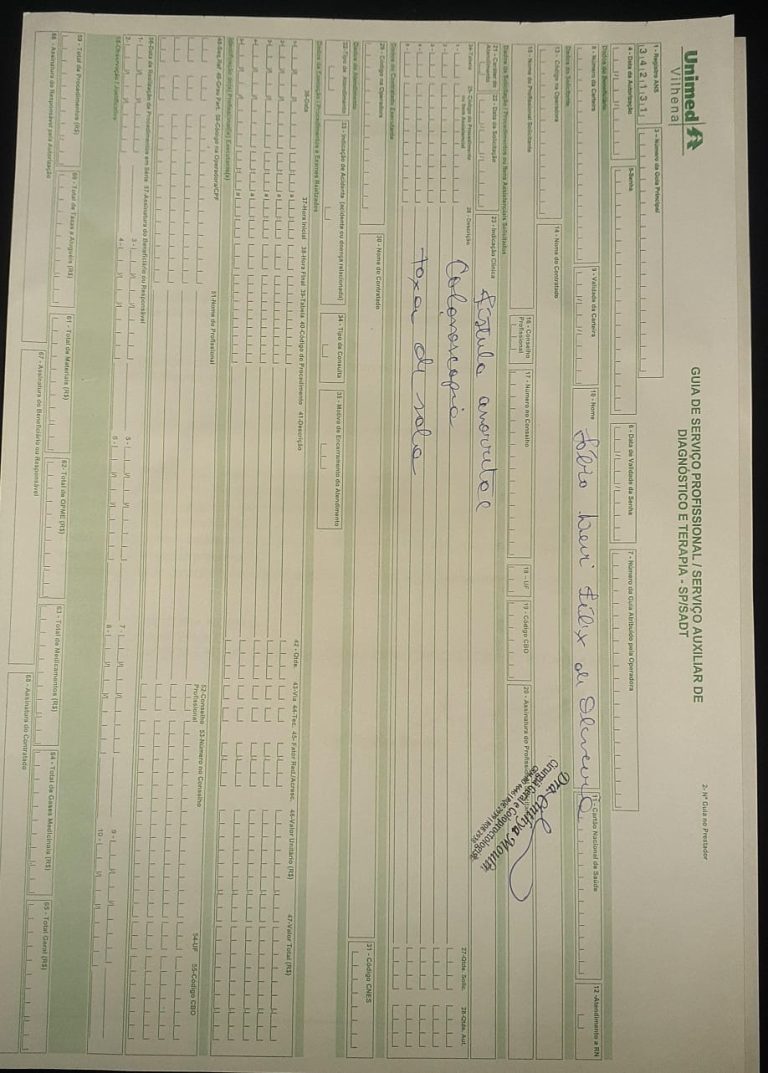 Unimed
Vilhena
GUIA DE SERVIÇO PROFISSIONAL / SERVIÇO AUXILIAR DE
DIAGNÓSTICO E TERAPIA - SP/SADT
2- Nº Guia no Prestador
1 - Registro ANS
342131
3 - Número da Guia Principal
4 - Data da Autorização
5-Senha
6 - Data de Validade da Senha
7 - Número da Guia Atribuído pela Operadora
Dados do Beneficiário
8 - Número da Carteira
9 - Validade da Carteira
10 - Nome
de Oliveira
11 - Cartão Nacional de Saúde
12 - Atendimento a RN
Dados do Solicitante
13 - Código na Operadora
14 - Nome do Contratado
15 - Nome do Profissional Solicitante
16 - Conselho Profissional
17 - Número no Conselho
18 - UF
19 - Código CBO
20 - Assinatura do Profissional
Cirurgia Geral e Coloproctologia
Dados da Solicitação / Procedimentos ou Itens Assistenciais Solicitados
21 - Caráter do Atendimento
22 - Data da Solicitação
23 - Indicação Clínica
Fístula anorretal
24-Tabela
25- Código do Procedimento ou Item Assistencial
26 - Descrição
27-Qtde. Solic.
28-Qtde. Aut.
1-
Colonoscopia
2-
3-
taxa de sala
4-
5-
Dados do Contratado Executante
29 - Código na Operadora
30 - Nome do Contratado
31 - Código CNES
Dados do Atendimento
32-Tipo de Atendimento
33 - Indicação de Acidente (acidente ou doença relacionada)
34 - Tipo de Consulta
35 - Motivo de Encerramento do Atendimento
Dados da Execução / Procedimentos e Exames Realizados
36-Data
37-Hora Inicial
38-Hora Final
39-Tabela
40-Código do Procedimento
41-Descrição
42 - Qtde.
43-Via
44-Tec.
45- Fator Red./Acresc.
46-Valor Unitário (R$)
47-Valor Total (R$)
Identificação do(s) Profissional(is) Executante(s)
48-Seq.Ref
49-Grau Part.
50-Código na Operadora/CPF
51-Nome do Profissional
52-Conselho Profissional
53-Número no Conselho
54-UF
55-Código CBO
56-Data de Realização de Procedimentos em Série
57-Assinatura do Beneficiário ou Responsável
1-
3-
5-
7-
9-
2-
4-
6-
8-
10-
58-Observação / Justificativa
59 - Total de Procedimentos (R$)
60 - Total de Taxas e Aluguéis (R$)
61 - Total de Materiais (R$)
62- Total de OPME (R$)
63 - Total de Medicamentos (R$)
64 - Total de Gases Medicinais (R$)
65 - Total Geral (R$)
66 - Assinatura do Responsável pela Autorização
67 - Assinatura do Beneficiário ou Responsável
68 - Assinatura do Contratado